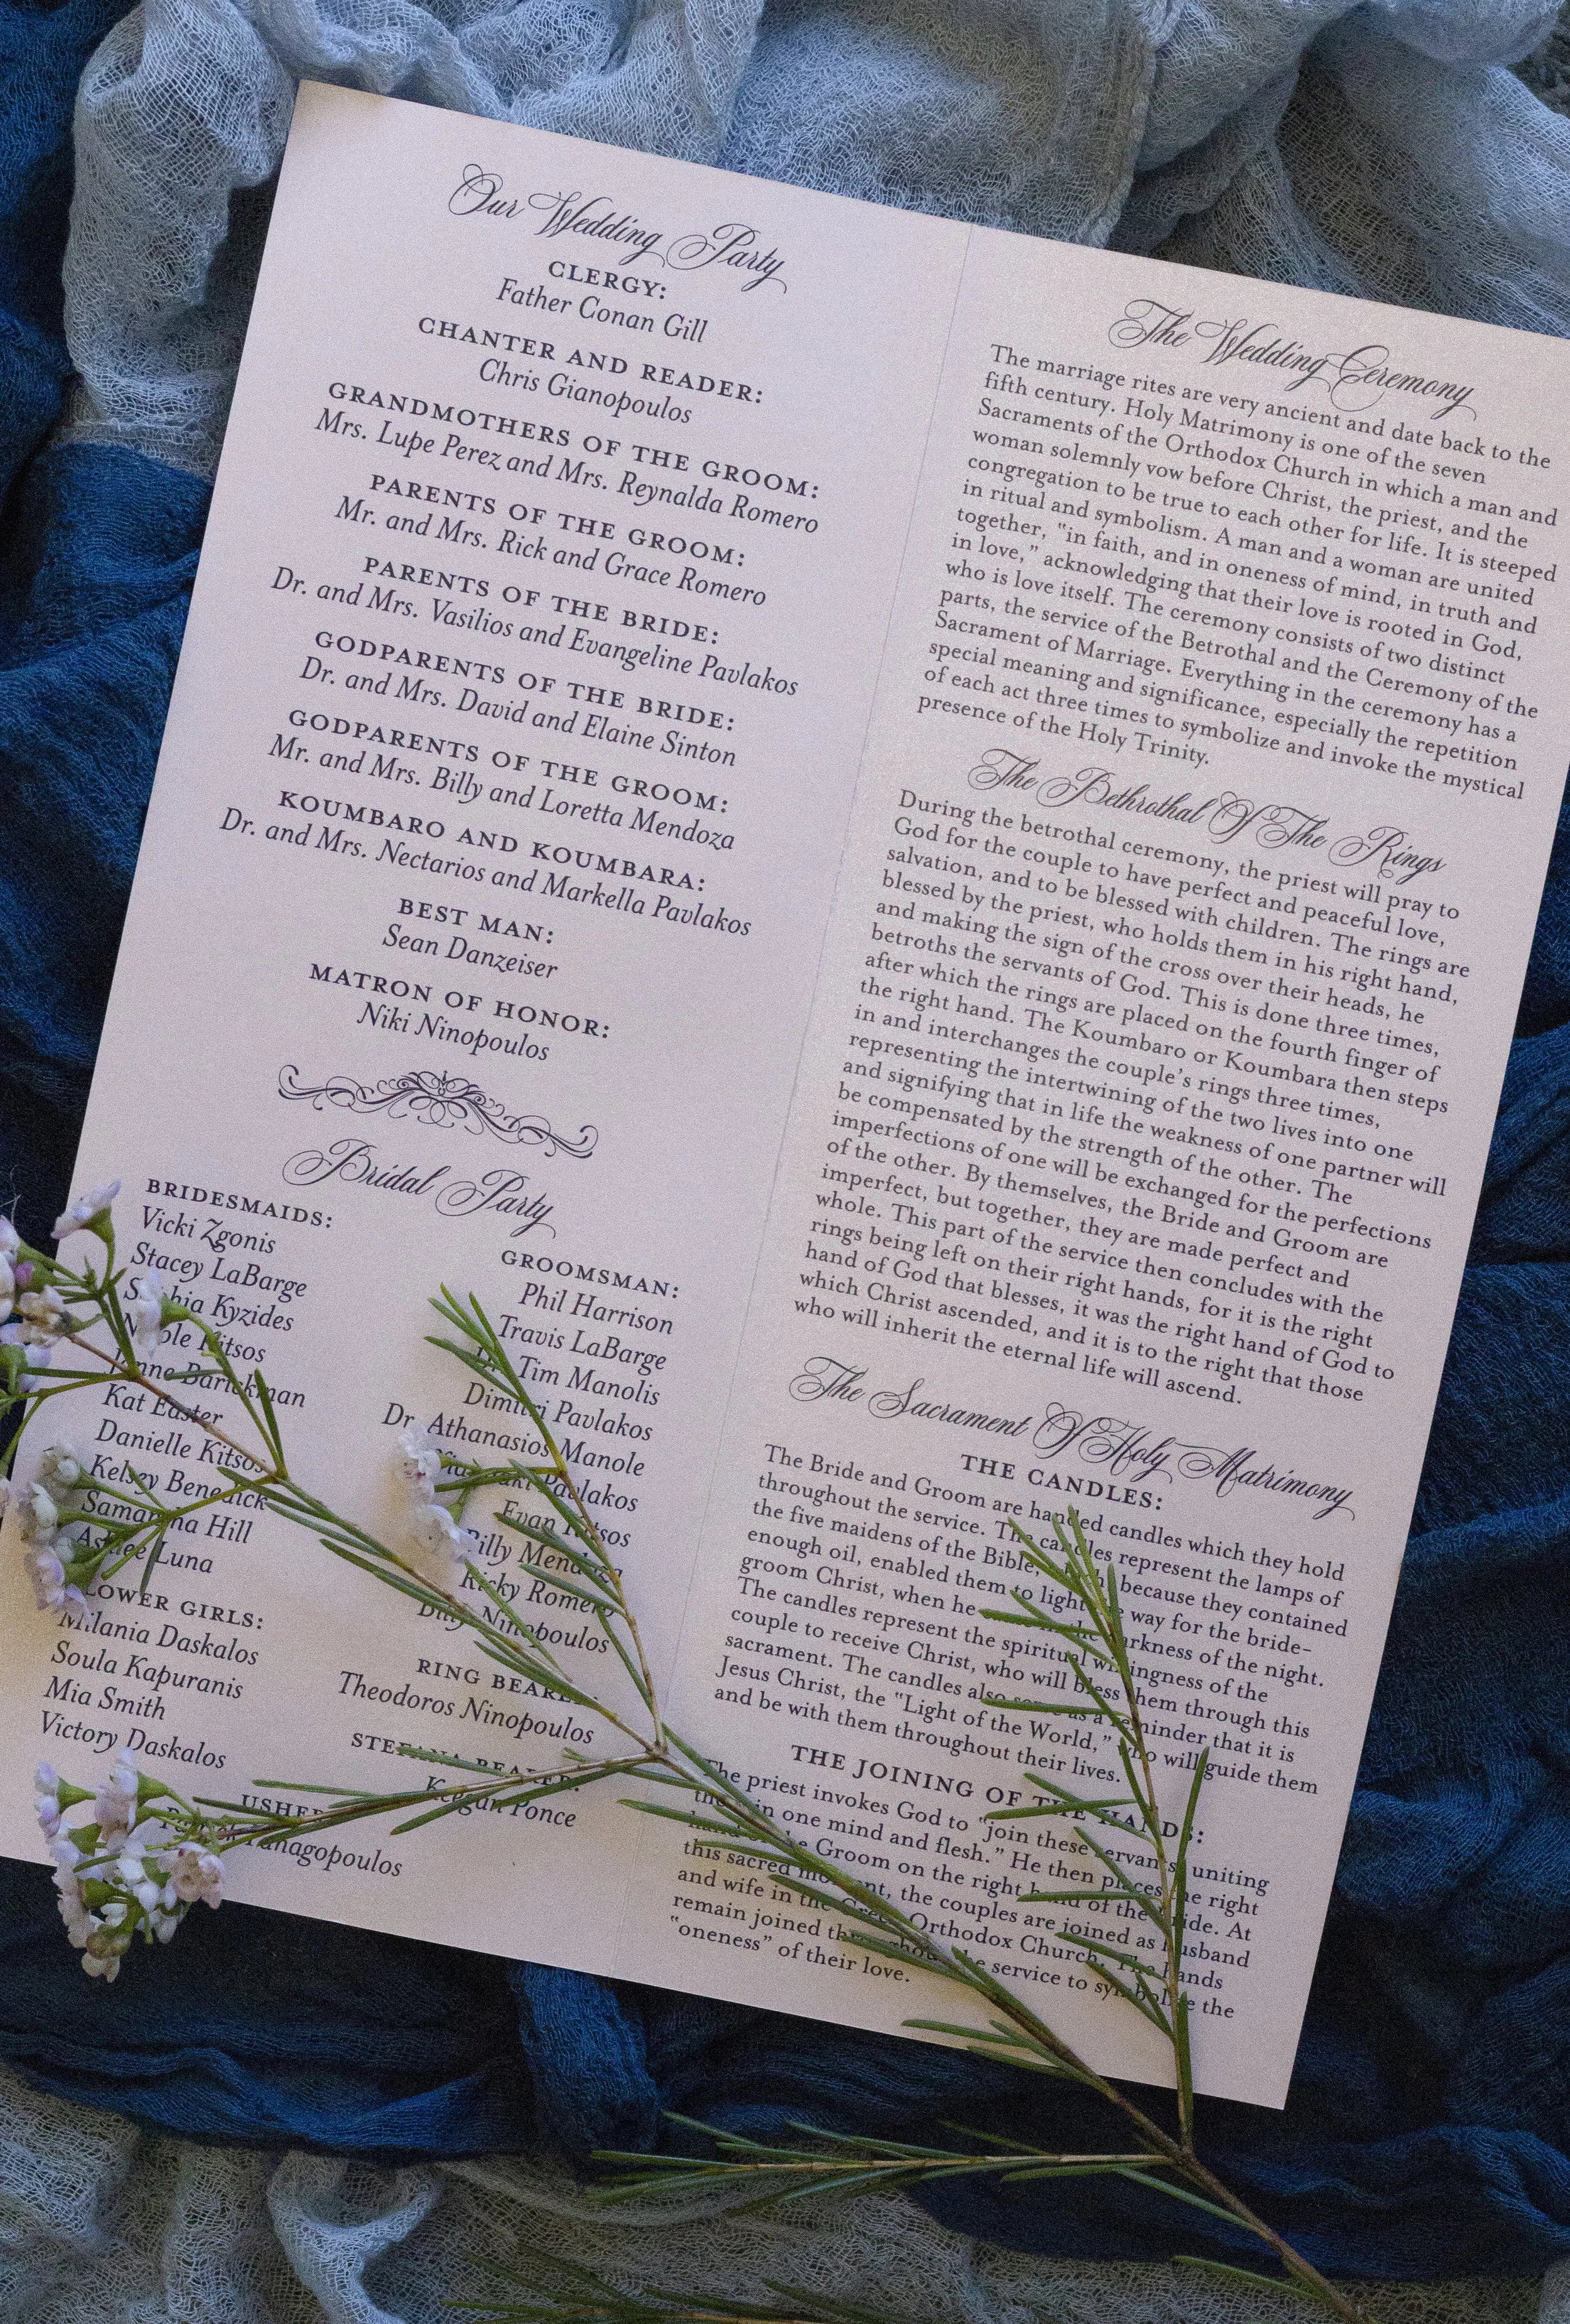 Our Wedding Party
CLERGY:
Father Conan Gill
CHANTER AND READER:
Chris Gianopoulos
GRANDMOTHERS OF THE GROOM:
Mrs. Lupe Perez and Mrs. Reynalda Romero
PARENTS OF THE GROOM:
Mr. and Mrs. Rick and Grace Romero
PARENTS OF THE BRIDE:
Dr. and Mrs. Vasilios and Evangeline Pavlakos
GODPARENTS OF THE BRIDE:
Dr. and Mrs. David and Elaine Sinton
GODPARENTS OF THE GROOM:
Mr. and Mrs. Billy and Loretta Mendoza
KOUMBARO AND KOUMBARA:
Dr. and Mrs. Nectarios and Markella Pavlakos
BEST MAN:
Sean Danzeiser
MATRON OF HONOR:
Niki Ninopoulos
Bridal Party
BRIDESMAIDS:
Vicki Zgonis
Stacey LaBarge
Sophia Kyzides
Nicole Kitsos
Barickman
Kat Easter
Danielle Kitsos
Kelsey Benedick
Samantha Hill
Ashlee Luna
FLOWER GIRLS:
Milania Daskalos
Soula Kapuranis
Mia Smith
Victory Daskalos
GROOMSMAN:
Phil Harrison
Travis LaBarge
Dr. Tim Manolis
Dimitri Pavlakos
Dr. Athanasios Manole
Pavlakos
Evan Kitsos
Billy Mendoza
Ricky Romero
Billy Ninopoulos
RING BEARER:
Theodoros Ninopoulos
STEFANA BEARER:
Keegan Ponce
USHER:
Panagopoulos
The Wedding Ceremony
The marriage rites are very ancient and date back to the
fifth century. Holy Matrimony is one of the seven
Sacraments of the Orthodox Church in which a man and
woman solemnly vow before Christ, the priest, and the
congregation to be true to each other for life. It is steeped
in ritual and symbolism. A man and a woman are united
together, "in faith, and in oneness of mind, in truth and
in love," acknowledging that their love is rooted in God,
who is love itself. The ceremony consists of two distinct
parts, the service of the Betrothal and the Ceremony of the
Sacrament of Marriage. Everything in the ceremony has a
special meaning and significance, especially the repetition
of each act three times to symbolize and invoke the mystical
presence of the Holy Trinity.
The Bethrothal Of The Rings
During the betrothal ceremony, the priest will pray to
God for the couple to have perfect and peaceful love,
salvation, and to be blessed with children. The rings are
blessed by the priest, who holds them in his right hand,
and making the sign of the cross over their heads, he
betroths the servants of God. This is done three times,
after which the rings are placed on the fourth finger of
the right hand. The Koumbaro or Koumbara then steps
in and interchanges the couple's rings three times,
representing the intertwining of the two lives into one
and signifying that in life the weakness of one partner will
be compensated by the strength of the other. The
imperfections of one will be exchanged for the perfections
of the other. By themselves, the Bride and Groom are
imperfect, but together, they are made perfect and
whole. This part of the service then concludes with the
rings being left on their right hands, for it is the right
hand of God that blesses, it was the right hand of God to
which Christ ascended, and it is to the right that those
who will inherit the eternal life will ascend.
The Sacrament Of Holy Matrimony
THE CANDLES:
The Bride and Groom are handed candles which they hold
throughout the service. The candles represent the lamps of
the five maidens of the Bible, which, because they contained
enough oil, enabled them to light the way for the bride-
groom Christ, when he came in the darkness of the night.
The candles represent the spiritual willingness of the
couple to receive Christ, who will bless them through this
sacrament. The candles also serve as a reminder that it is
Jesus Christ, the "Light of the World," who will guide them
and be with them throughout their lives.
THE JOINING OF THE HANDS:
The priest invokes God to "join these servants, uniting
them in one mind and flesh." He then places the right
hand of the Groom on the right hand of the Bride. At
this sacred moment, the couples are joined as husband
and wife in the Greek Orthodox Church. The hands
remain joined throughout the service to symbolize the
"oneness" of their love.